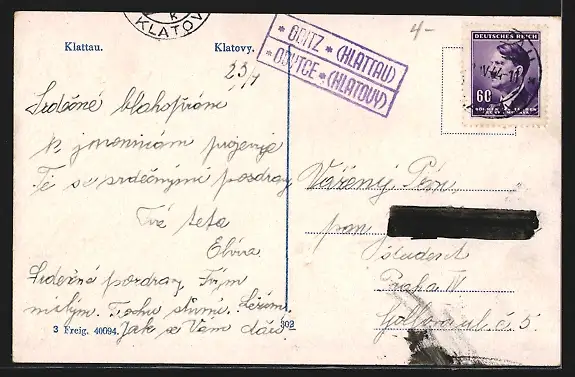 KLATOV
Klattau. Klatovy.
* ODITZ * (KLATTAU)
* ODYTCE * (KLATOVY)
4-
DEUTSCHES REICH
60
23/4
Srdečné blahopřání
k jmeninám projevuje
Ti se srdečnými pozdravy
Tvá teta
Elvíra.
Srdečné pozdravy Tvým
milým.
Jak se Vám daří
Vážený Pán
pan
student
Praha IV
č. 5.
3 Freig. 40094.
302